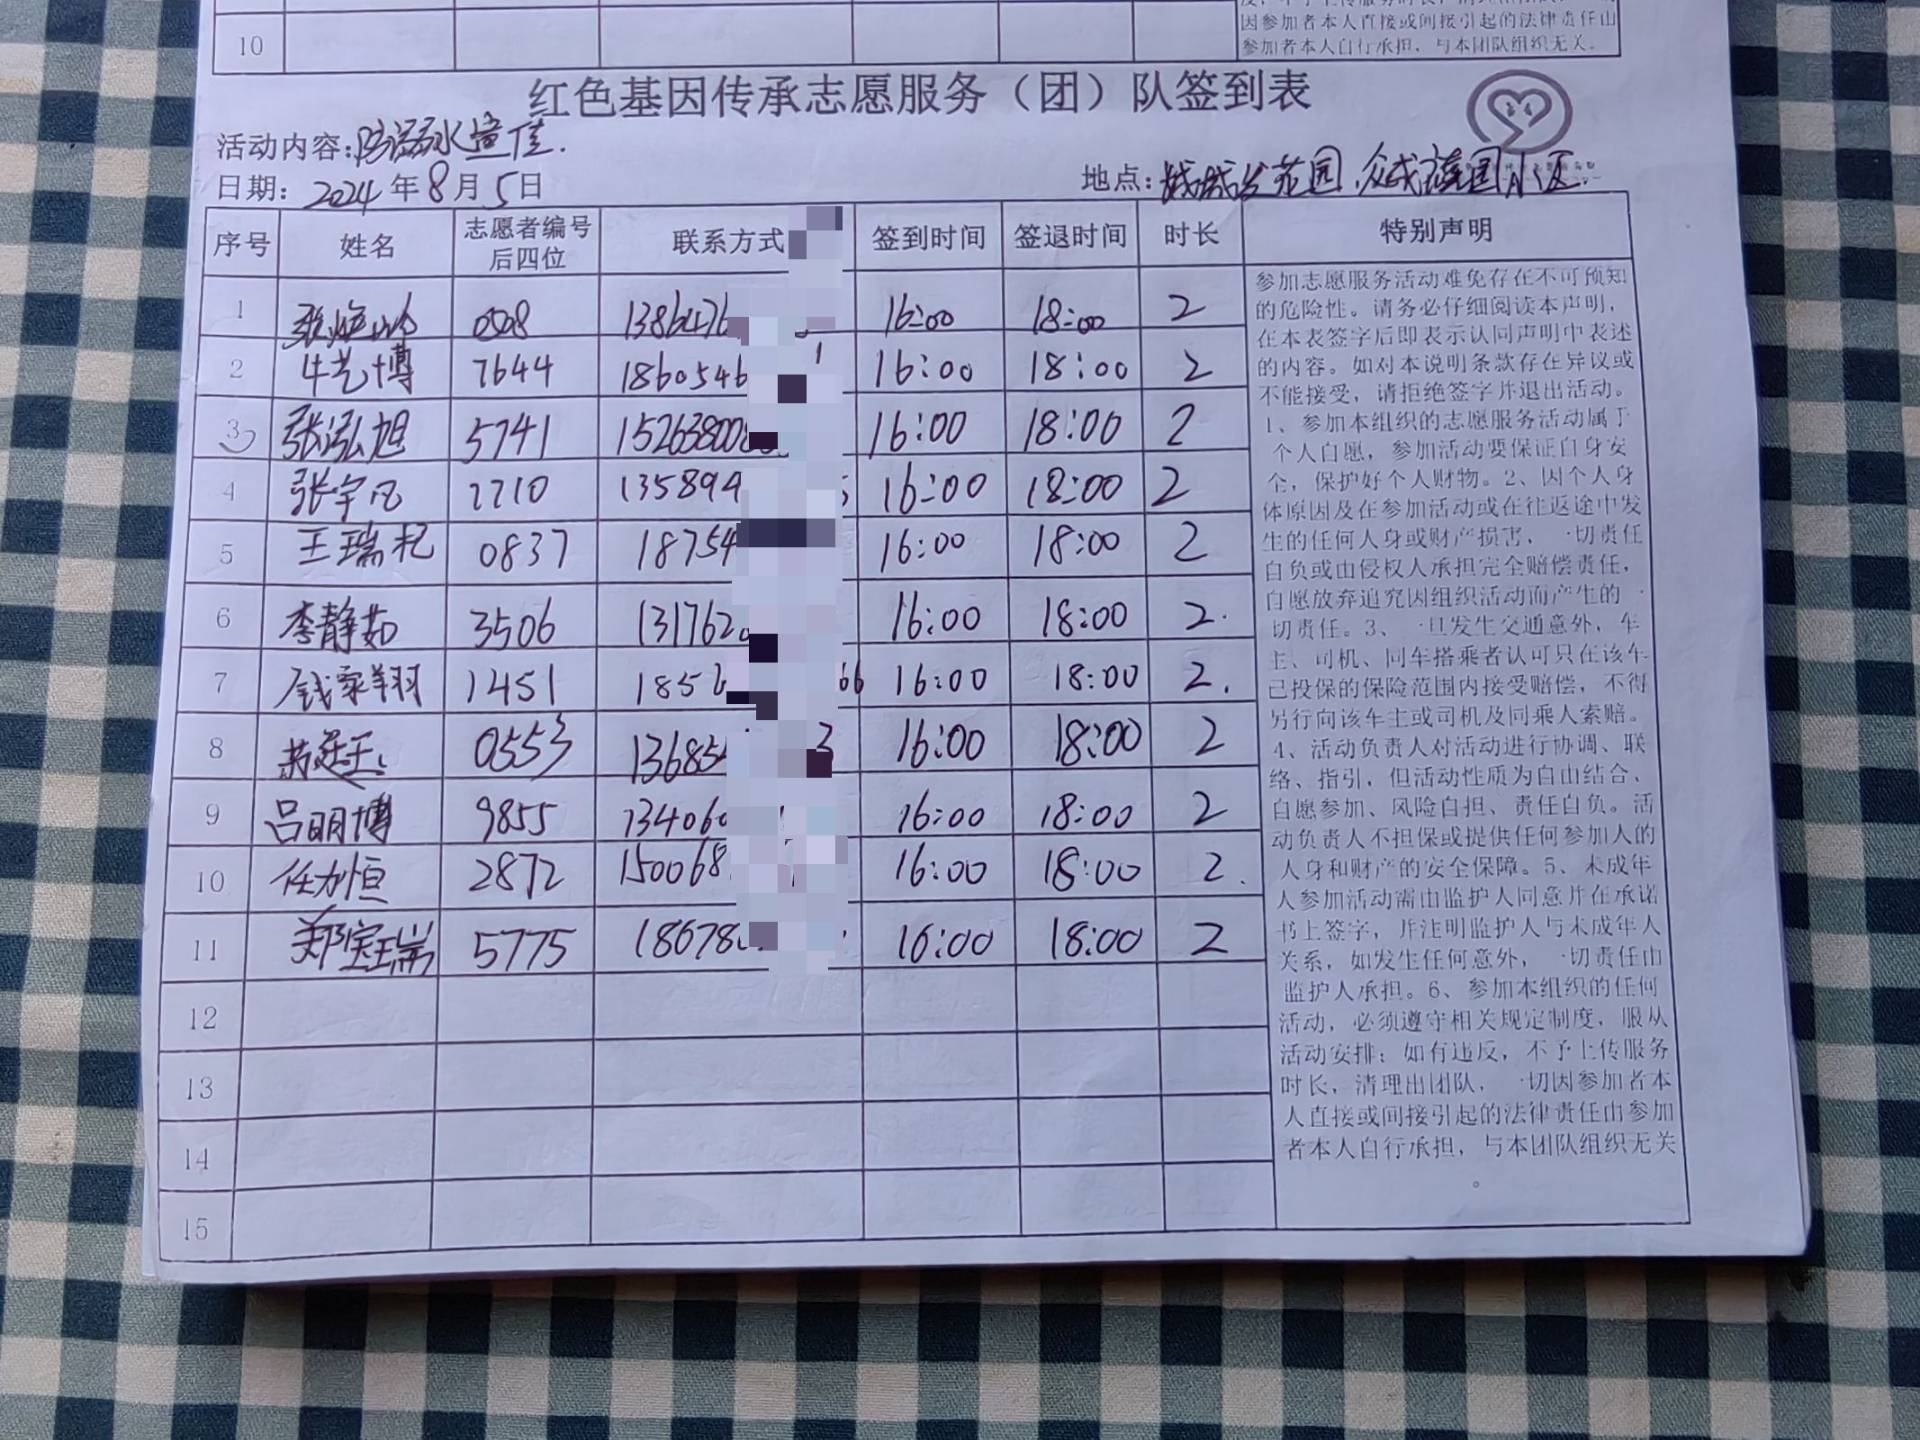 因参加者本人直接或间接引起的法律责任由
10 参加者本人自行承担，与本团队组织无关。
红色基因传承志愿服务（团）队签到表
活动内容：防溺水宣传.
日期：2024年8月5日 地点：花园.众成 小区.
序号 姓名 志愿者编号后四位 联系方式 签到时间 签退时间 时长 特别声明
1 0508 1386476 16:00 18:00 2
2 牛艺博 7644 1860546 1 16:00 18:00 2
3 张泓旭 5741 152638008 16:00 18:00 2
4 张宇凡 2710 135894 5 16:00 18:00 2
5 王瑞杞 0837 18754 16:00 18:00 2
6 李静茹 3506 131762 16:00 18:00 2.
7 钱家翔 1451 1856 66 16:00 18:00 2.
8 0553 13685 3 16:00 18:00 2
9 吕明博 9855 134060 16:00 18:00 2
10 任力恒 2872 150068 16:00 18:00 2.
11 郑宝瑞 5775 18678 16:00 18:00 2
12
13
14
15
参加志愿服务活动难免存在不可预知
的危险性。请务必仔细阅读本声明，
在本表签字后即表示认同声明中表述
的内容。如对本说明条款存在异议或
不能接受，请拒绝签字并退出活动。
1、参加本组织的志愿服务活动属于
个人自愿，参加活动要保证自身安
全，保护好个人财物。2、因个人身
体原因及在参加活动或在往返途中发
生的任何人身或财产损害，一切责任
自负或由侵权人承担完全赔偿责任，
自愿放弃追究因组织活动而产生的一
切责任。3、一旦发生交通意外，车
主、司机、同车搭乘者认可只在该车
已投保的保险范围内接受赔偿，不得
另行向该车主或司机及同乘人索赔。
4、活动负责人对活动进行协调、联
络、指引，但活动性质为自由结合、
自愿参加、风险自担、责任自负。活
动负责人不担保或提供任何参加人的
人身和财产的安全保障。5、未成年
人参加活动需由监护人同意并在承诺
书上签字，并注明监护人与未成年人
关系，如发生任何意外，一切责任由
监护人承担。6、参加本组织的任何
活动，必须遵守相关规定制度，服从
活动安排；如有违反，不予上传服务
时长，清理出团队，一切因参加者本
人直接或间接引起的法律责任由参加
者本人自行承担，与本团队组织无关
。